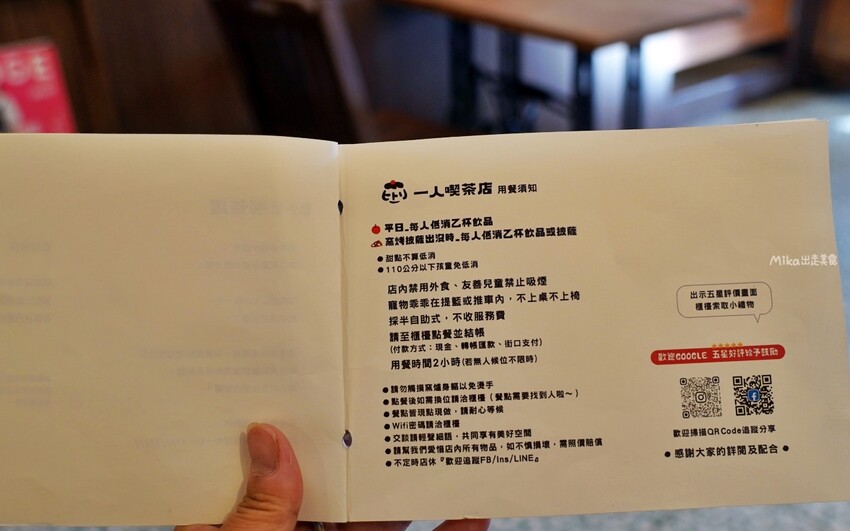 DGE
ヒトリ 一人喫茶店 用餐須知
平日_每人低消乙杯飲品
窯烤披薩出沒時_每人低消乙杯飲品或披薩
● 甜點不算低消
● 110公分以下孩童免低消
店內禁用外食、友善兒童禁止吸煙
寵物乖乖在提籃或推車內，不上桌不上椅
採半自助式，不收服務費
請至櫃檯點餐並結帳
(付款方式：現金、轉帳匯款、街口支付)
用餐時間2小時(若無人候位不限時)
● 請勿觸摸窯爐身軀以免燙手
● 點餐後如需換位請洽櫃檯（餐點需要找到人啦～）
● 餐點皆現點現做，請耐心等候
● Wifi密碼請洽櫃檯
● 交談請輕聲細語，共同享有美好空間
● 請幫我們愛惜店內所有物品，如不慎損壞，需照價賠償
● 不定時店休『歡迎追蹤FB/Ins/LINE』
出示五星評價畫面
櫃檯索取小禮物
歡迎GOOGLE 五星好評給予鼓勵
歡迎掃描QRCode追蹤分享
● 感謝大家的詳閱及配合 ●
Mika出走美食